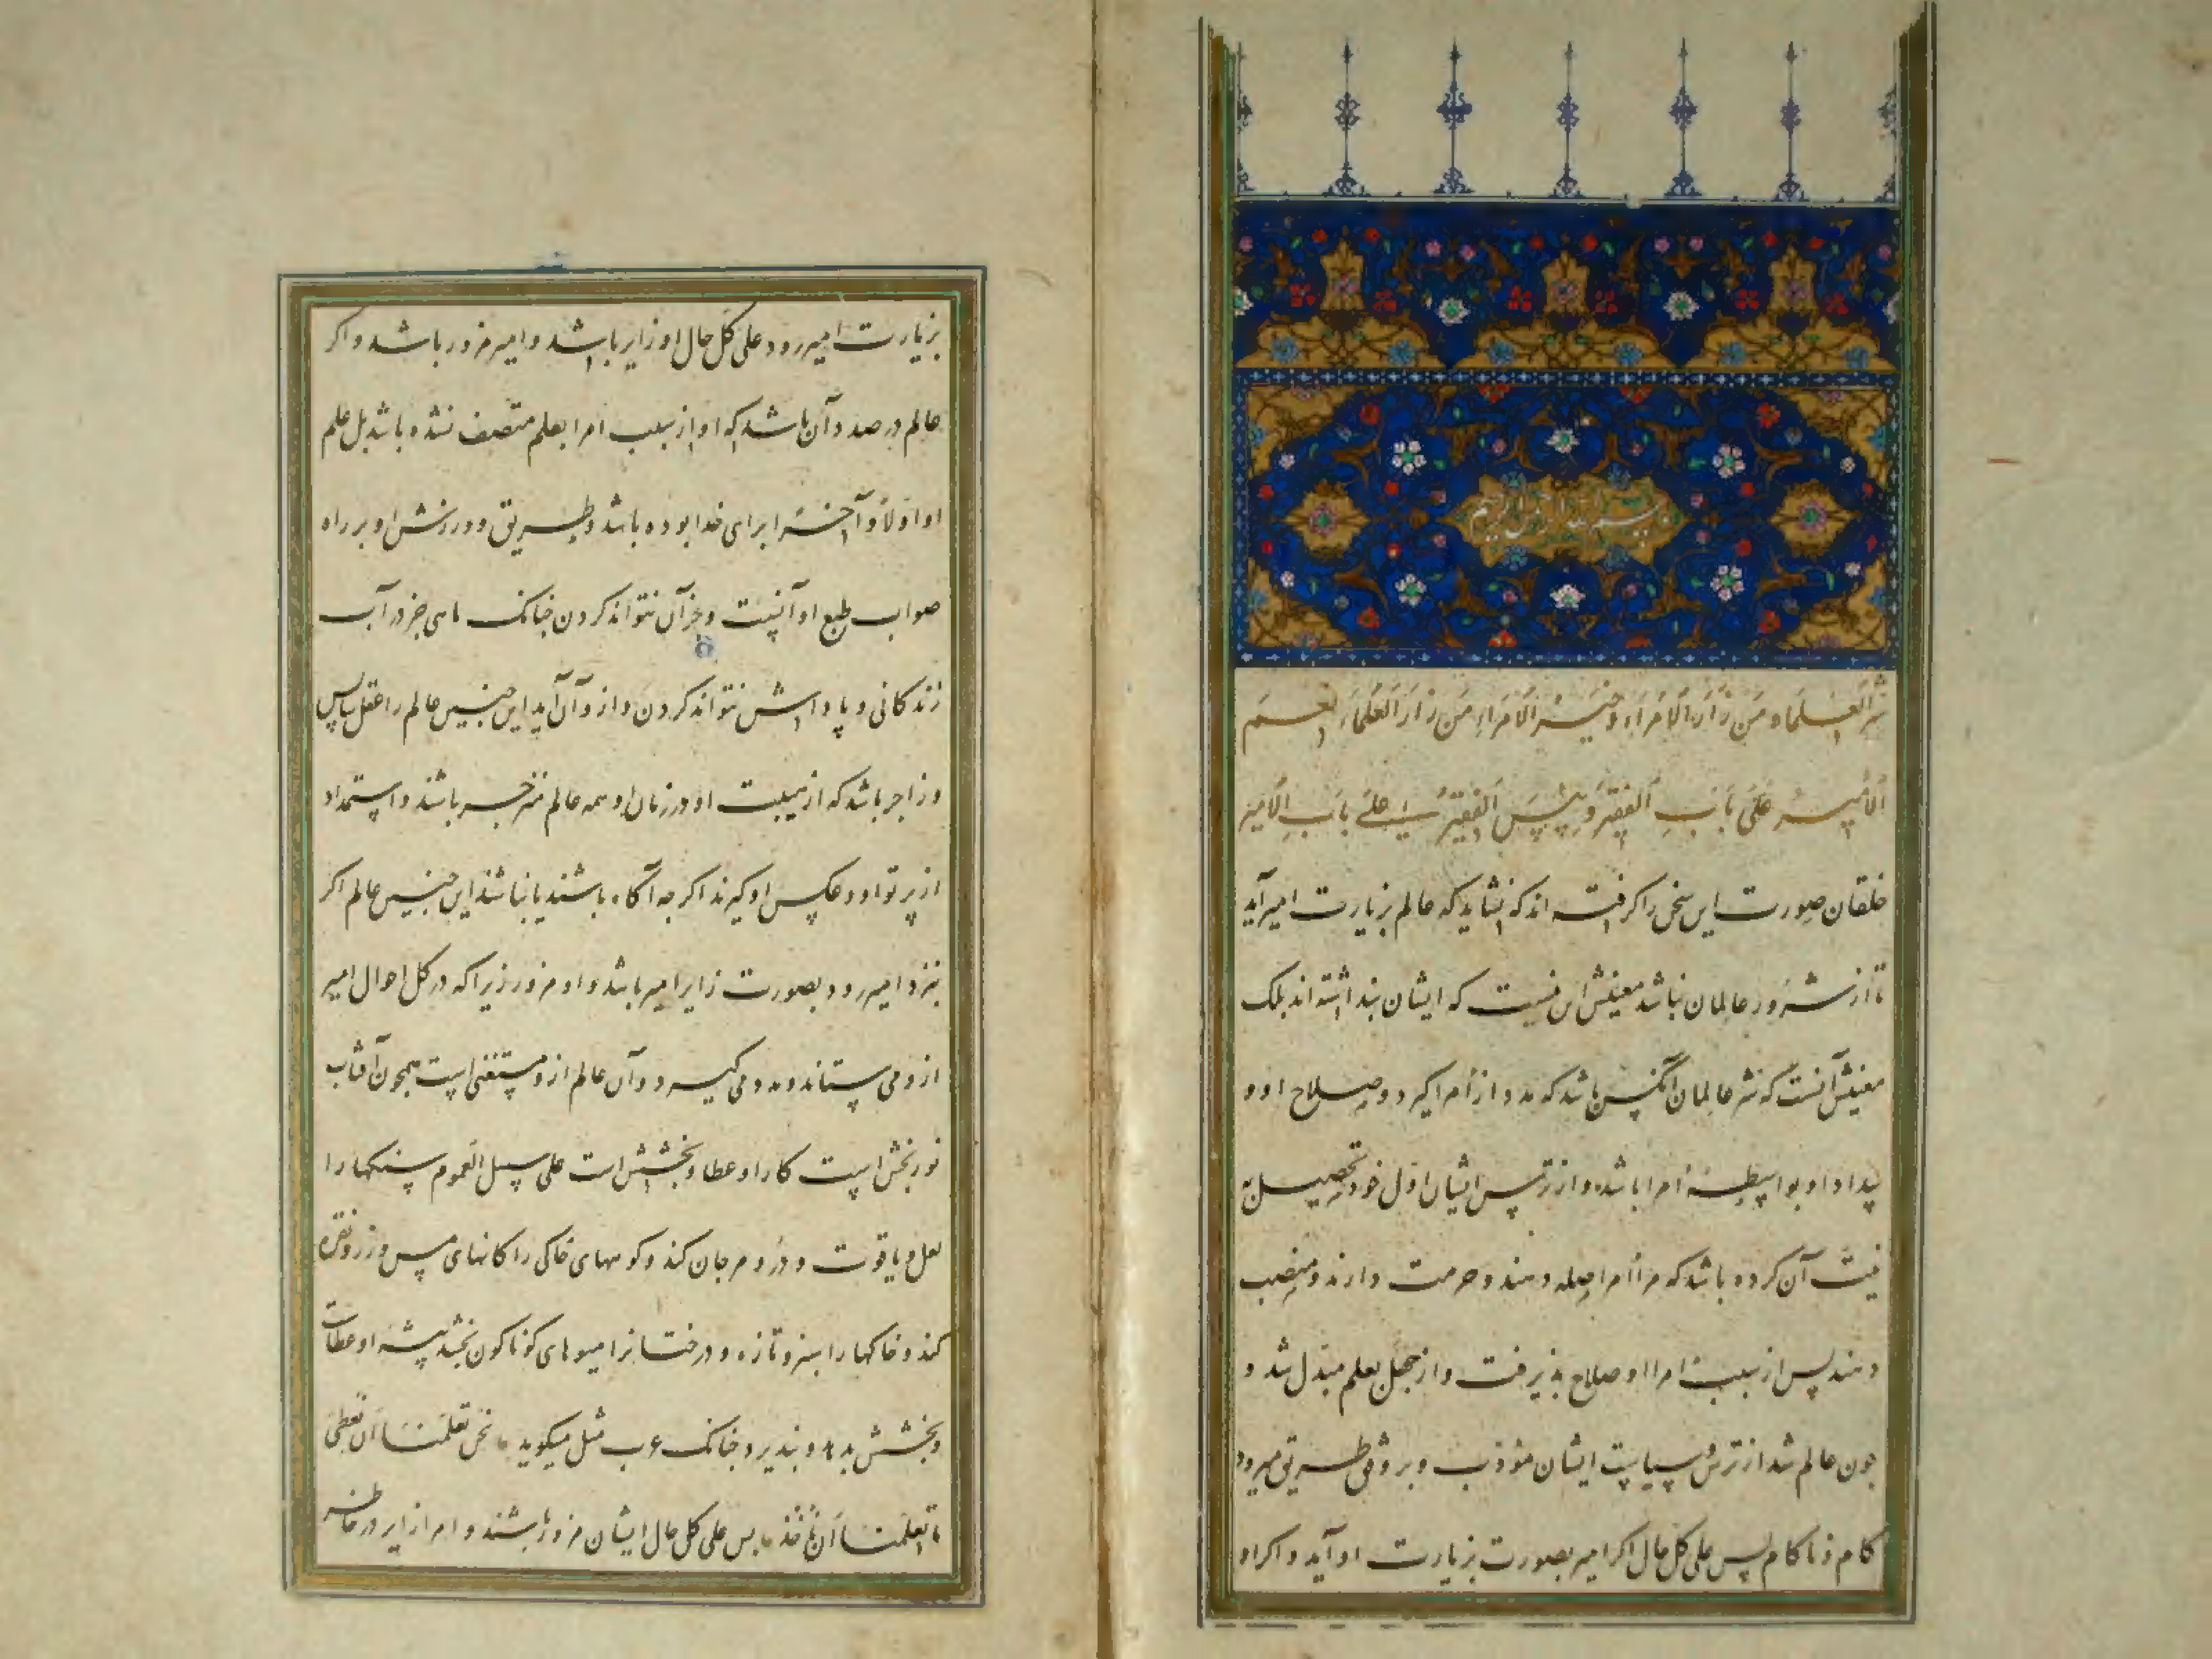 بسم الله الرحمن الرحیم
شر العلماء من زار الامراء و خیر الامراء من زار العلماء نعم
الامیر علی باب الفقیر و بئس الفقیر علی باب الامیر
خلقان صورت این سخن را کرفته اند که نشاید که عالم بزیارت امیر آید
تا از شرور عالمان نباشد معنیش این نیست که ایشان بنداشته اند بلک
معنیش آنست که شر عالمان آنکس باشد که مدد از امرا کیرد و صلاح او و
سداد او بواسطهٔ امرا باشد و از ترس ایشان اول خود تحصیل به
نیت آن کرده باشد که مرا امرا صله دهند و حرمت دارند و منصب
دهند پس از سبب امرا او صلاح بذیرفت و از جهل بعلم مبدل شد و
جون عالم شد از ترس و سیاست ایشان مؤدب و بر وفق طریق میرود
کام و ناکام پس علی کل حال اکر امیر بصورت بزیارت او آید و اکر او
بزیارت امیر رود علی کل حال او زایر باشد و امیر مزور باشد و اکر
عالم در صدد آن باشد که او از سبب امرا بعلم متصف نشده باشد بل علم
او اولا و آخرا برای خدا بوده باشد و طریق و ورزش او بر راه
صواب طبع او آنست و جز آن نتواند کردن جنانک ماهی جز در آب
زندکانی و باداش نتواند کردن و ازو آن آید این جنین عالم را عقل سایس
و زاجر باشد که از هیبت او در زمان او همه عالم منزجر باشند و استمداد
از پرتو او و عکس او کیرند اکر جه آکاه باشند یا نباشند این جنین عالم اکر
بنزد امیر رود بصورت زایر امیر باشد و او مزور زیرا که در کل احوال امیر
ازو می ستاند و مدد می کیرد و آن عالم ازو مستغنی است همجون آفتاب
نوربخش است کار او عطا و بخشش است علی سبیل العموم سنکها را
لعل و یاقوت و در و مرجان کند و کوههای خاکی را کانهای مس و زر و نقره
کند و خاکها را سبز و تازه و درختانرا میوهای کوناکون بخشد پیشهٔ او عطاست
و بخشش بدهد و نبذیرد جنانک عرب مثل میکوید نحن تعلمنا ان نعطی
ما تعلمنا ان ناخذ پس علی کل حال ایشان مزور باشند و امرا زایر در خاطر